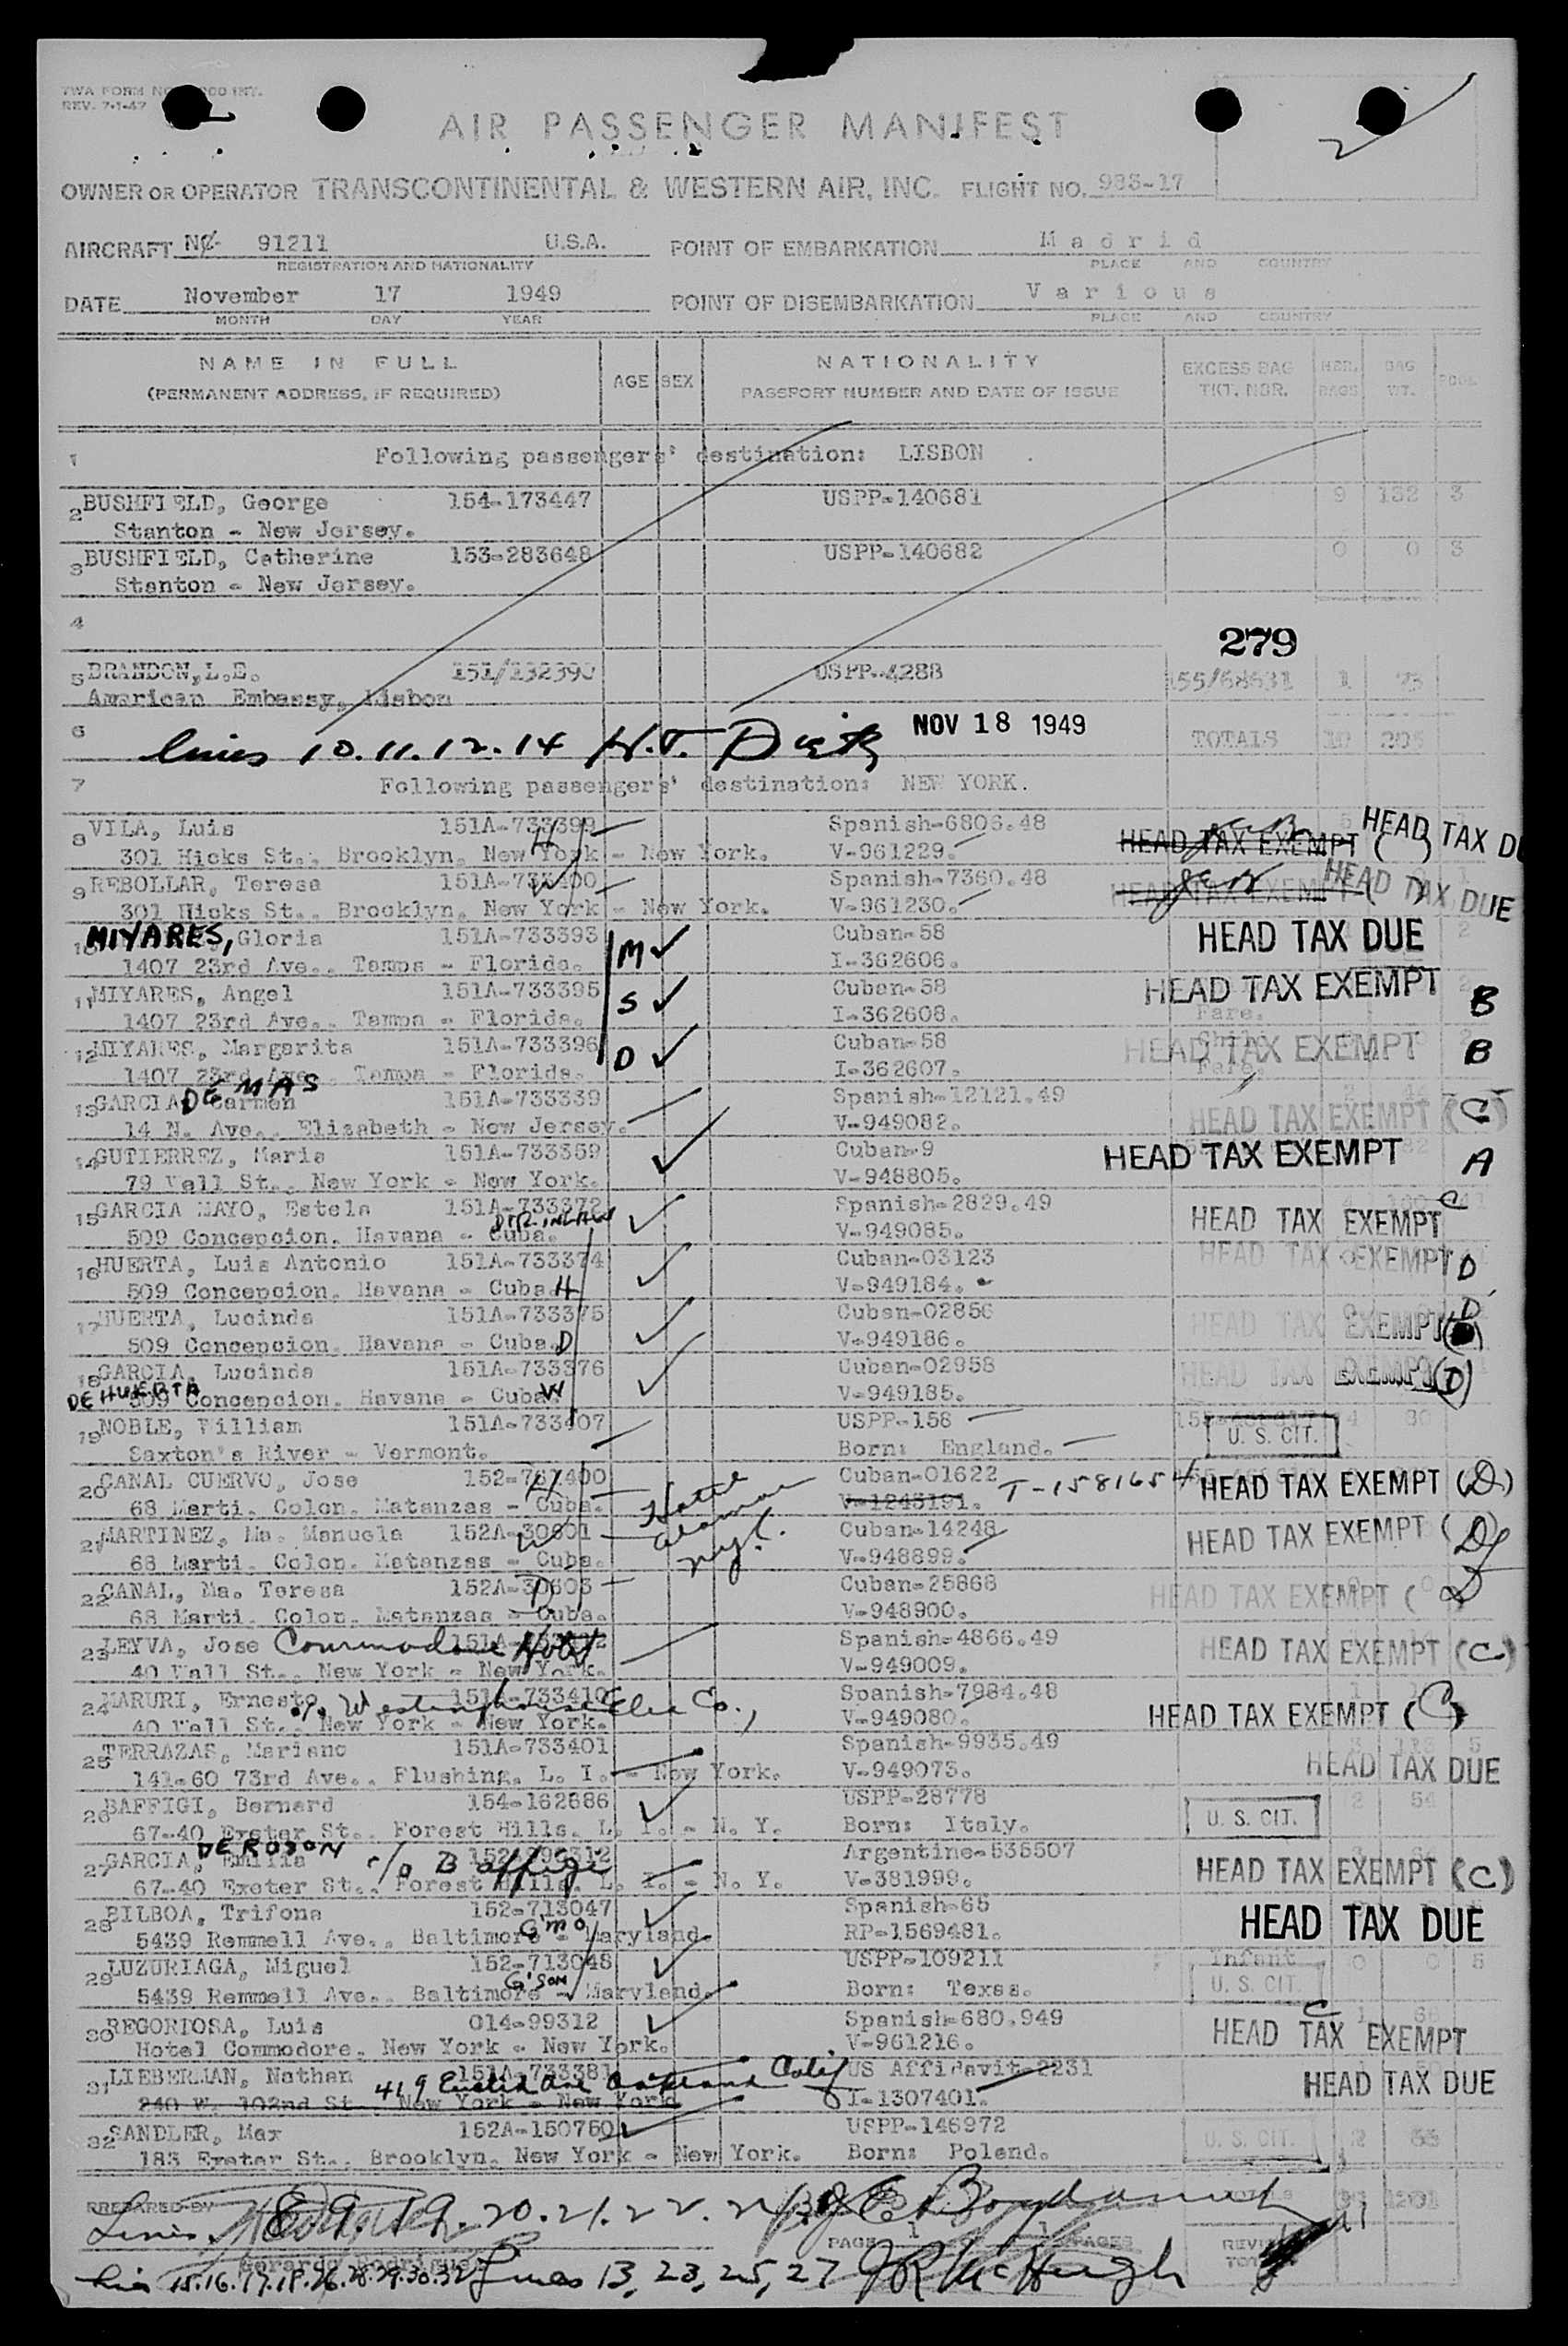 TWA FORM NO. INT.
REV. 7-1-47
AIR PASSENGER MANIFEST
2
OWNER OR OPERATOR TRANSCONTINENTAL & WESTERN AIR, INC. FLIGHT NO. 983-17
AIRCRAFT NC- 91211 U.S.A. POINT OF EMBARKATION Madrid
REGISTRATION AND NATIONALITY PLACE AND COUNTRY
DATE November 17 1949 POINT OF DISEMBARKATION Various
MONTH DAY YEAR PLACE AND COUNTRY
NAME IN FULL AGE SEX NATIONALITY EXCESS BAG BAG
(PERMANENT ADDRESS, IF REQUIRED) PASSPORT NUMBER AND DATE OF ISSUE TKT. NBR. BAGS WT. POOL
1 Following passengers' destination: LISBON
2 BUSHFIELD, George 154-173447 USPP-140681 9 182 3
Stanton - New Jersey.
3 BUSHFIELD, Catherine 153-283648 USPP-140682 0 0 3
Stanton - New Jersey.
4
279
5 BRANDON, L.E. 151/132390 USPP-4288 155/68631 1 23
American Embassy, Lisbon
6 lines 10.11.12.14 H.T. NOV 18 1949 TOTALS 10 205
7 Following passengers' destination: NEW YORK.
8 VILA, Luis 151A-733399 H Spanish-6806.48 HEAD TAX EXEMPT ( ) HEAD TAX DU
301 Hicks St., Brooklyn, New York - New York. V-961229.
9 REBOLLAR, Teresa 151A-733400 W Spanish-7360.48 HEAD TAX EXEMPT HEAD TAX DUE
301 Hicks St., Brooklyn, New York - New York. V-961230.
10 MIYARES, Gloria 151A-733393 M Cuban-58 HEAD TAX DUE 2
1407 23rd Ave., Tampa - Florida. I-362606.
11 MIYARES, Angel 151A-733395 S Cuban-58 HEAD TAX EXEMPT B
1407 23rd Ave., Tampa - Florida. I-362608. Fare.
12 MIYARES, Margarita 151A-733396 D Cuban-58 HEAD TAX EXEMPT B
1407 23rd Ave., Tampa - Florida. I-362607. Fare.
13 GARCIA, DE MAS Carmen 151A-733339 Spanish-12121.49 HEAD TAX EXEMPT (C)
14 N. Ave., Elizabeth - New Jersey. V-949082.
14 GUTIERREZ, Maria 151A-733359 Cuban-9 HEAD TAX EXEMPT A
79 Wall St., New York - New York. V-948805.
15 GARCIA MAYO, Estela 151A-733372 Spanish-2829.49 HEAD TAX EXEMPT C
509 Concepcion, Havana - Cuba. V-949085.
16 HUERTA, Luis Antonio 151A-733374 Cuban-03123 HEAD TAX EXEMPT D
509 Concepcion, Havana - Cuba H V-949184.
17 HUERTA, Lucinda 151A-733375 Cuban-02856 HEAD TAX EXEMPT D
509 Concepcion, Havana - Cuba. D V-949186.
18 GARCIA, Lucinda 151A-733376 Cuban-02958 HEAD TAX EXEMPT (D)
DE HUERTA 509 Concepcion, Havana - Cuba. W V-949185.
19 NOBLE, William 151A-733407 USPP-158 4 80
Saxton's River - Vermont. Born: England. U. S. CIT.
20 CANAL CUERVO, Jose 152-761400 H Cuban-01622 T-1581654 HEAD TAX EXEMPT (D)
68 Marti, Colon, Matanzas - Cuba. Hotel V-1245191.
21 MARTINEZ, Ma. Manuela 152A-30601 W Cuban-14248 HEAD TAX EXEMPT (D)
68 Marti, Colon, Matanzas - Cuba. V-948899.
22 CANAL, Ma. Teresa 152A-30603 D Cuban-25868 HEAD TAX EXEMPT ( D
68 Marti, Colon, Matanzas - Cuba. V-948900.
23 LEYVA, Jose Commodore Hotel Spanish-4866.49 HEAD TAX EXEMPT (C)
40 Wall St., New York - New York. V-949009.
24 MARURI, Ernesto 151A-733410 c/o Westinghouse Elec Co., Spanish-7984.48 HEAD TAX EXEMPT (C)
40 Wall St., New York - New York. V-949080.
25 TERRAZAS, Mariano 151A-733401 Spanish-9935.49 HEAD TAX DUE
141-60 73rd Ave., Flushing, L. I. - New York. V-949073.
26 BAFFIGI, Bernard 154-162686 USPP-28778 2 54
67-40 Exeter St., Forest Hills, L. I. - N. Y. Born: Italy. U. S. CIT.
27 GARCIA, DE ROSON Emilia c/o Baffigi Argentine-535507 HEAD TAX EXEMPT (C)
67-40 Exeter St., Forest Hills, L. I. - N. Y. V-381999.
28 BILBOA, Trifona 152-713047 Spanish-65 HEAD TAX DUE
5439 Remmell Ave., Baltimore - Maryland. G'mo RP-1569481.
29 LUZURIAGA, Miguel 152-713048 USPP-109211 Infant 0 0 5
5439 Remmell Ave., Baltimore - Maryland. G'son Born: Texas. U. S. CIT.
30 REGORIOSA, Luis 014-99312 Spanish-680.949 C HEAD TAX EXEMPT
Hotel Commodore, New York - New York. V-961216.
31 LIEBERMAN, Nathan 151A-733381 US Affidavit-2231 HEAD TAX DUE
419 Euclid Ave Oakland Calif
240 W. 102nd St., New York - New York I-1307401.
32 SANDLER, Max 152A-150750 USPP-146972 U. S. CIT. 2 55
183 Exeter St., Brooklyn, New York - New York. Born: Poland.
PREPARED BY TOTALS 1201
Lines 8.9.19.20.21.22.24
PAGE 1 1 PAGES REVISED TOTALS
Gerardo Rodriguez
lines 15.16.17.18.26.28.29.30.32 Lines 13, 23, 25, 27 J R McHugh